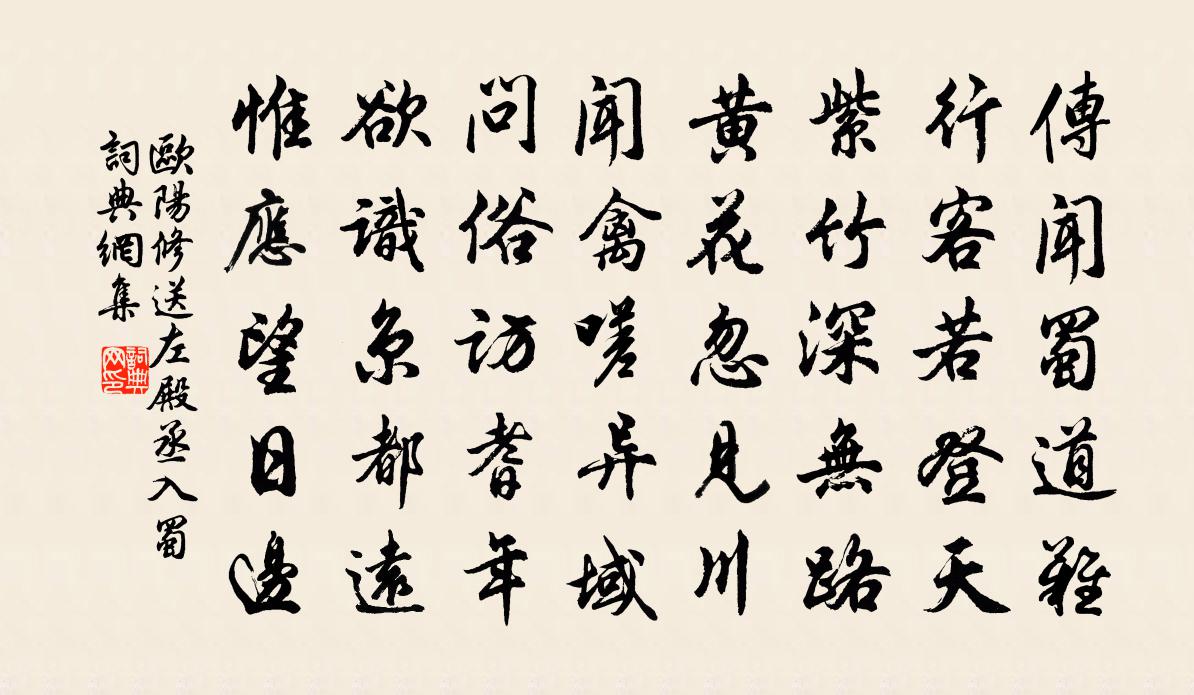 傳聞蜀道難
行客若登天
紫竹深無路
黃花忽見川
聞禽嗟异域
問俗訪耆年
欲識京都遠
惟應望日邊
歐陽修送左殿丞入蜀
詞典網集
詞典网印